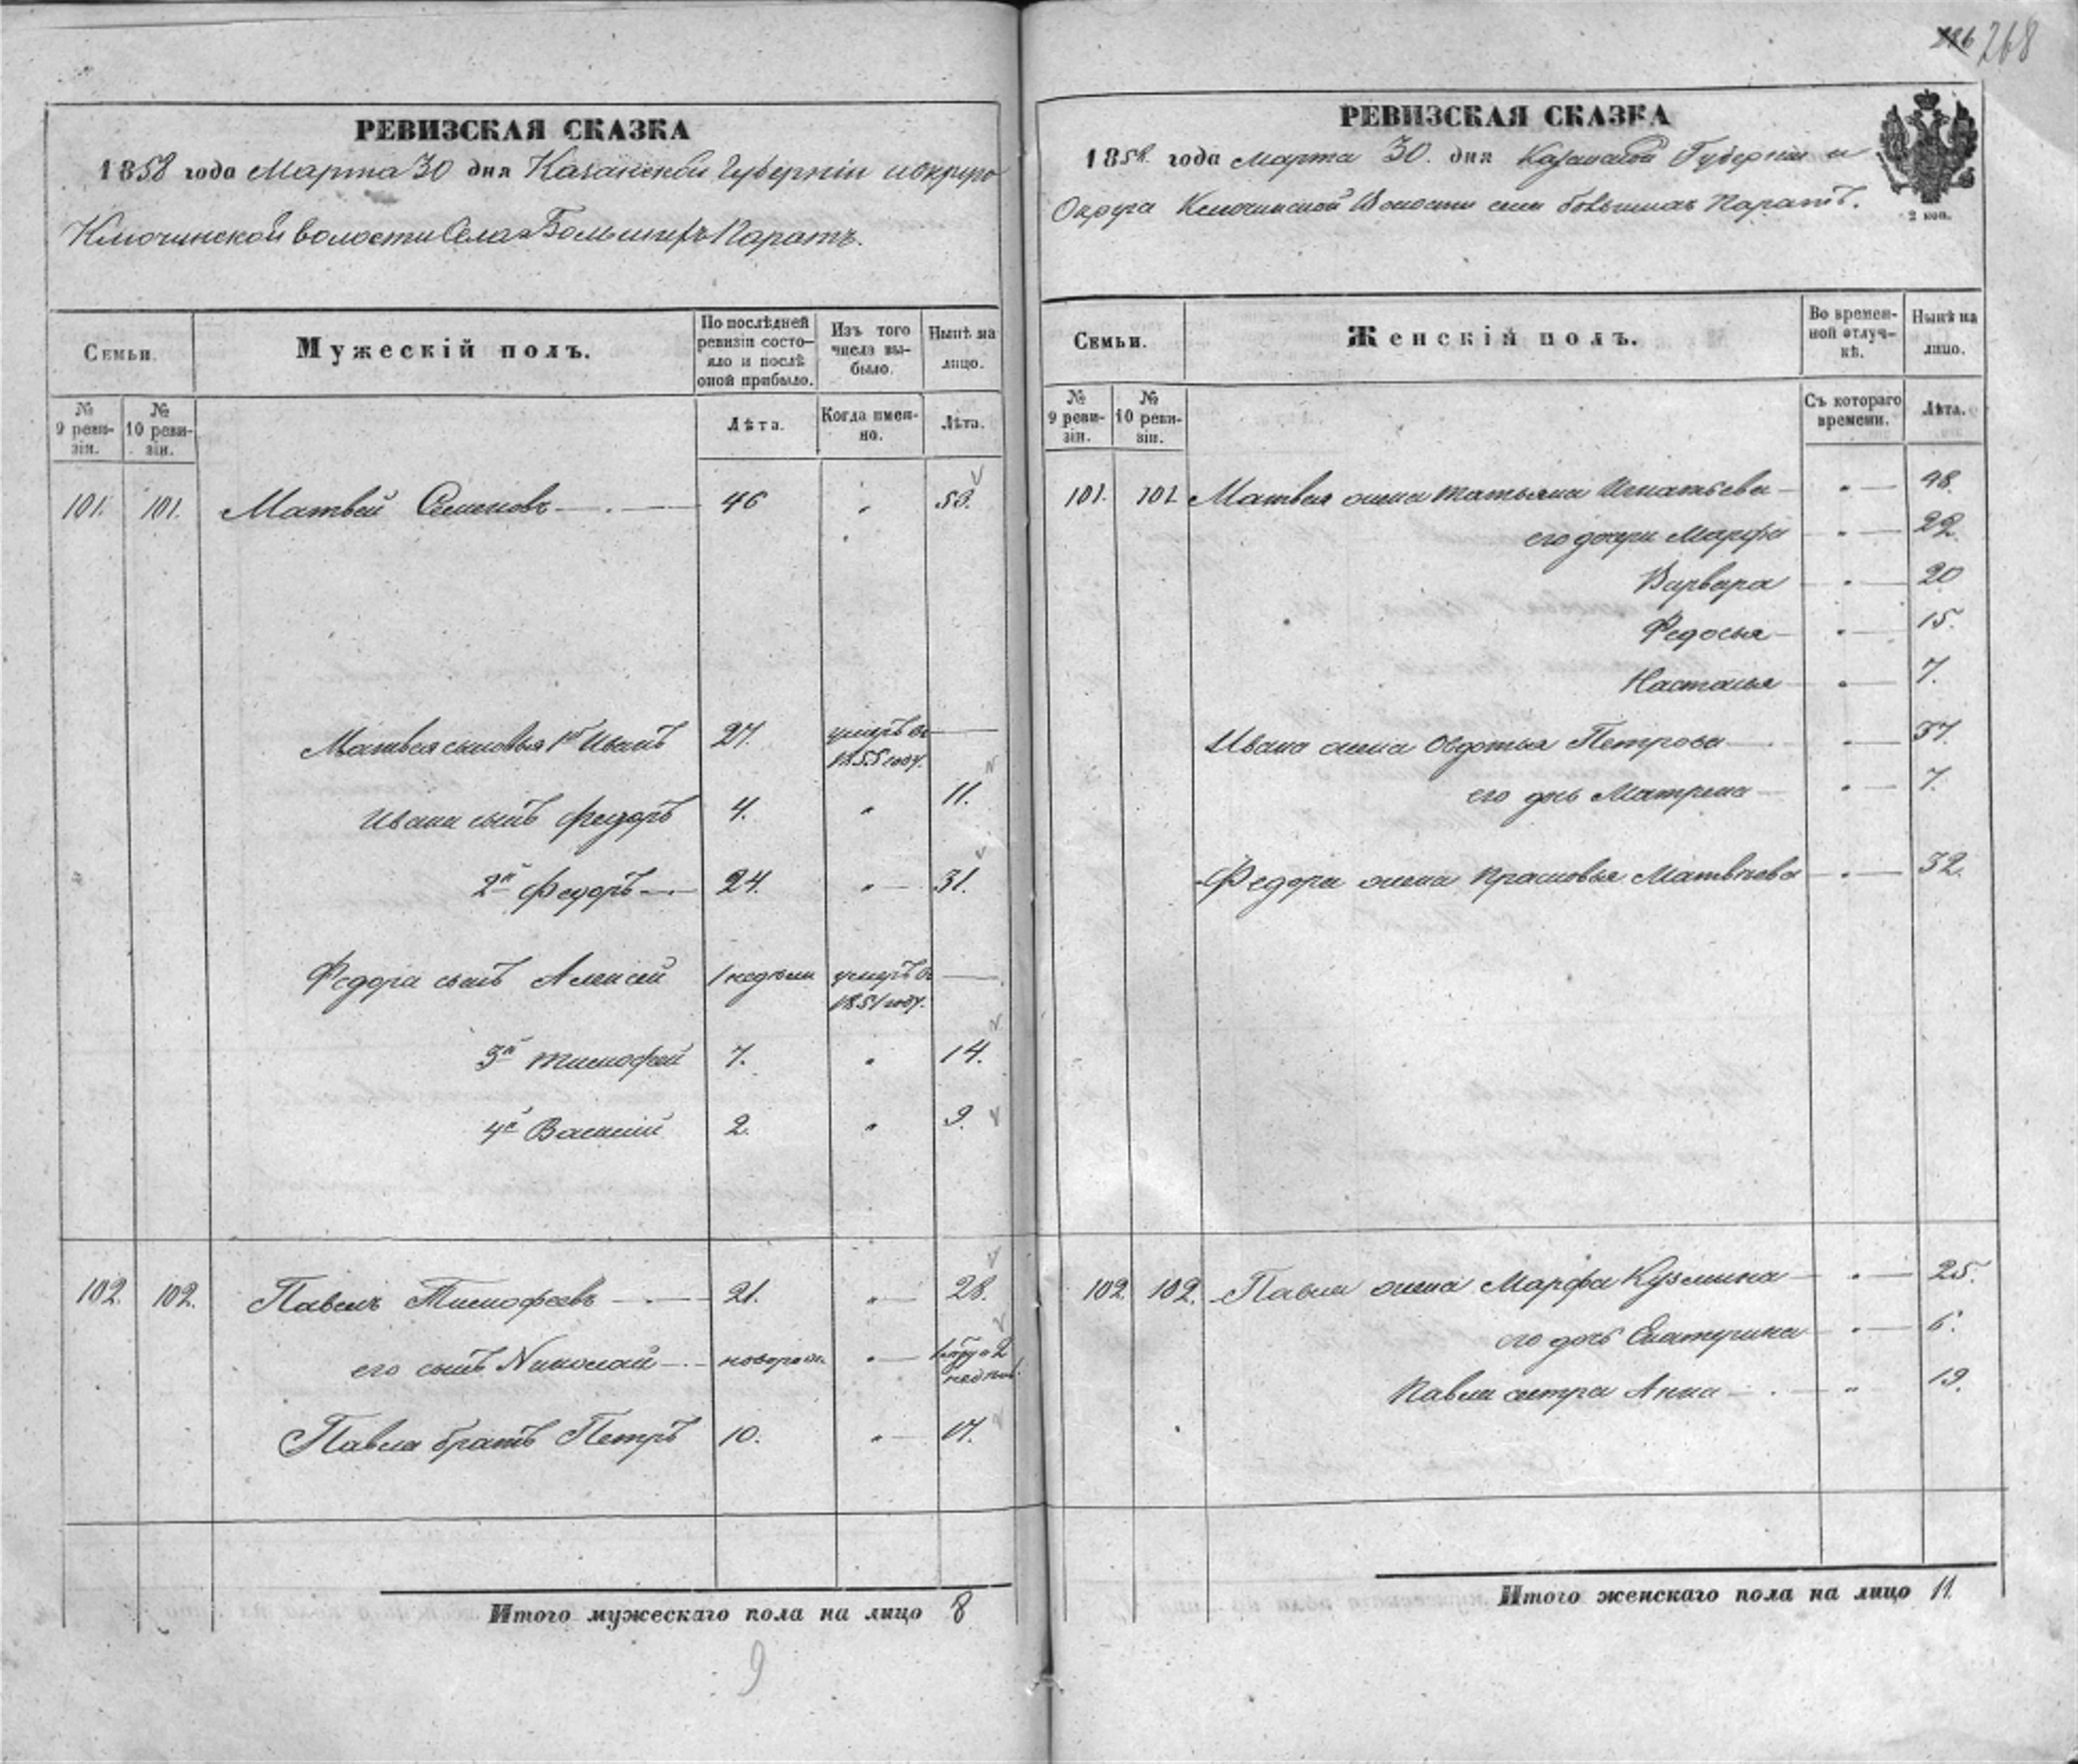 226 268
РЕВИЗСКАЯ СКАЗКА
1858 года Марта 30 дня Казанской Губерніи и округа
Ключинской волости Села Большихъ Паратъ.
Семьи.
Мужескій полъ.
По послѣдней ревизіи состояло и послѣ оной прибыло.
Изъ того числа выбыло.
Нынѣ на лицо.
№ 9 ревизіи.
№ 10 ревизіи.
Лѣта.
Когда именно.
Лѣта.
101. 101. Матвей Семеновъ 46 " 53.
Матвея сыновья 1й Иванъ 27. умеръ въ 1855 году.
Ивана сынъ Федоръ 4. " 11.
2й Федоръ 24. " 31.
Федора сынъ Алексей 1 недели умеръ въ 1851 году.
3й Тимофей 7. " 14.
4й Василий 2. " 9.
102. 102. Павелъ Тимофеевъ 21. " 28.
его сынъ Николай новорож. "
Павла братъ Петръ 10. " 17.
Итого мужескаго пола на лицо 8
9
РЕВИЗСКАЯ СКАЗКА
1858. года марта 30. дня Казанской Губерніи и
Округа Ключинской Волости села большихъ Паратъ.
2 коп.
Семьи.
Женскій полъ.
Во временной отлучкѣ.
Нынѣ на лицо.
№ 9 ревизіи.
№ 10 ревизіи.
Съ котораго времени.
Лѣта.
101. 101 Матвея жена татьяна Игнатьева " 48.
его дочери Марфа " 22.
Варвара " 20
Федосья " 15.
Настасья " 7.
Ивана жена Овдотья Петрова " 37.
его дочь Матрена " 7.
Федора жена Прасковья Матвѣева " 32.
102. 102. Павла жена Марфа Кузмина " 25.
его дочь Екатерина " 6.
Павла сестра Анна " 19.
Итого женскаго пола на лицо 11.